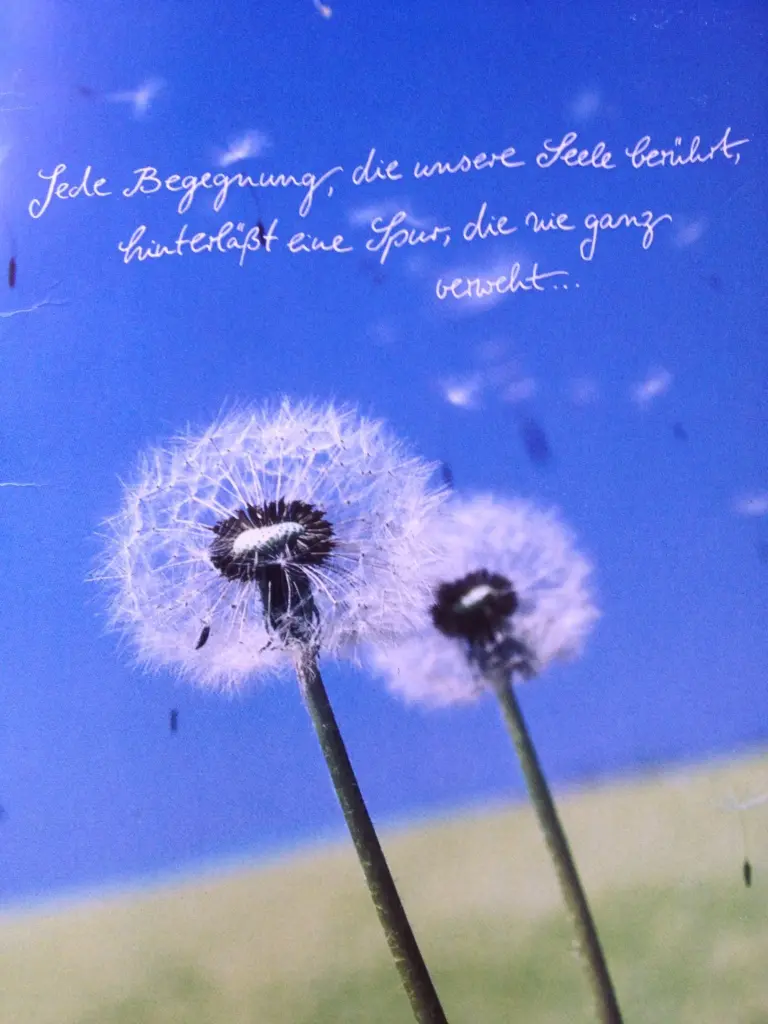 Jede Begegnung, die unsere Seele berührt,
hinterläßt eine Spur, die nie ganz
verweht...